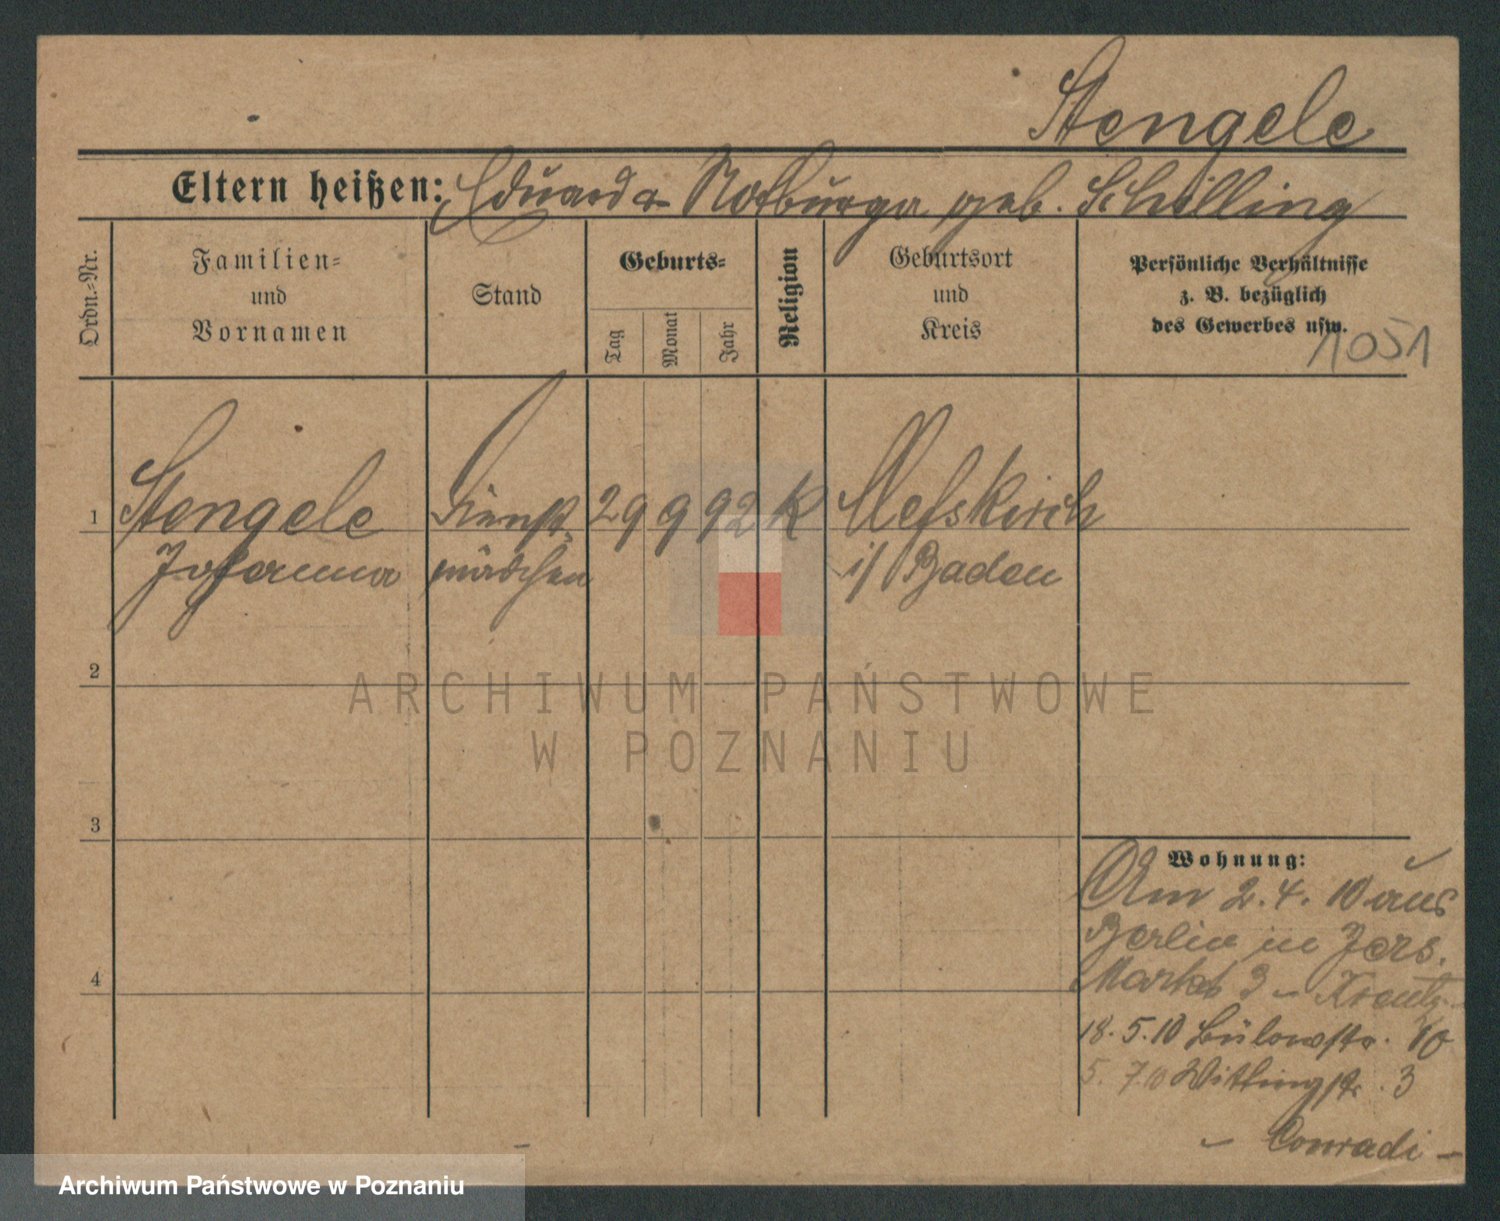 Stengele
Eltern heißen: Eduard u Notburga geb. Schilling
Ordn.-Nr.
Familien-
und
Vornamen
Stand
Geburts-
Tag
Monat
Jahr
Religion
Geburtsort
und
Kreis
Persönliche Verhältnisse
z. B. bezüglich
des Gewerbes usw.
1051
1 Stengele Dienst 29 9 92 k Messkirch
Johanna mädchen i/ Baden
2
3
4
Wohnung:
Am 2. 4. 10 aus
Berlin in Jers.
Markt 3 - Kreutz
18. 5. 10 Bülowstr. 10
5. 7. 10 Wittingstr. 3
- Conradi -
ARCHIWUM PAŃSTWOWE
W POZNANIU
Archiwum Państwowe w Poznaniu